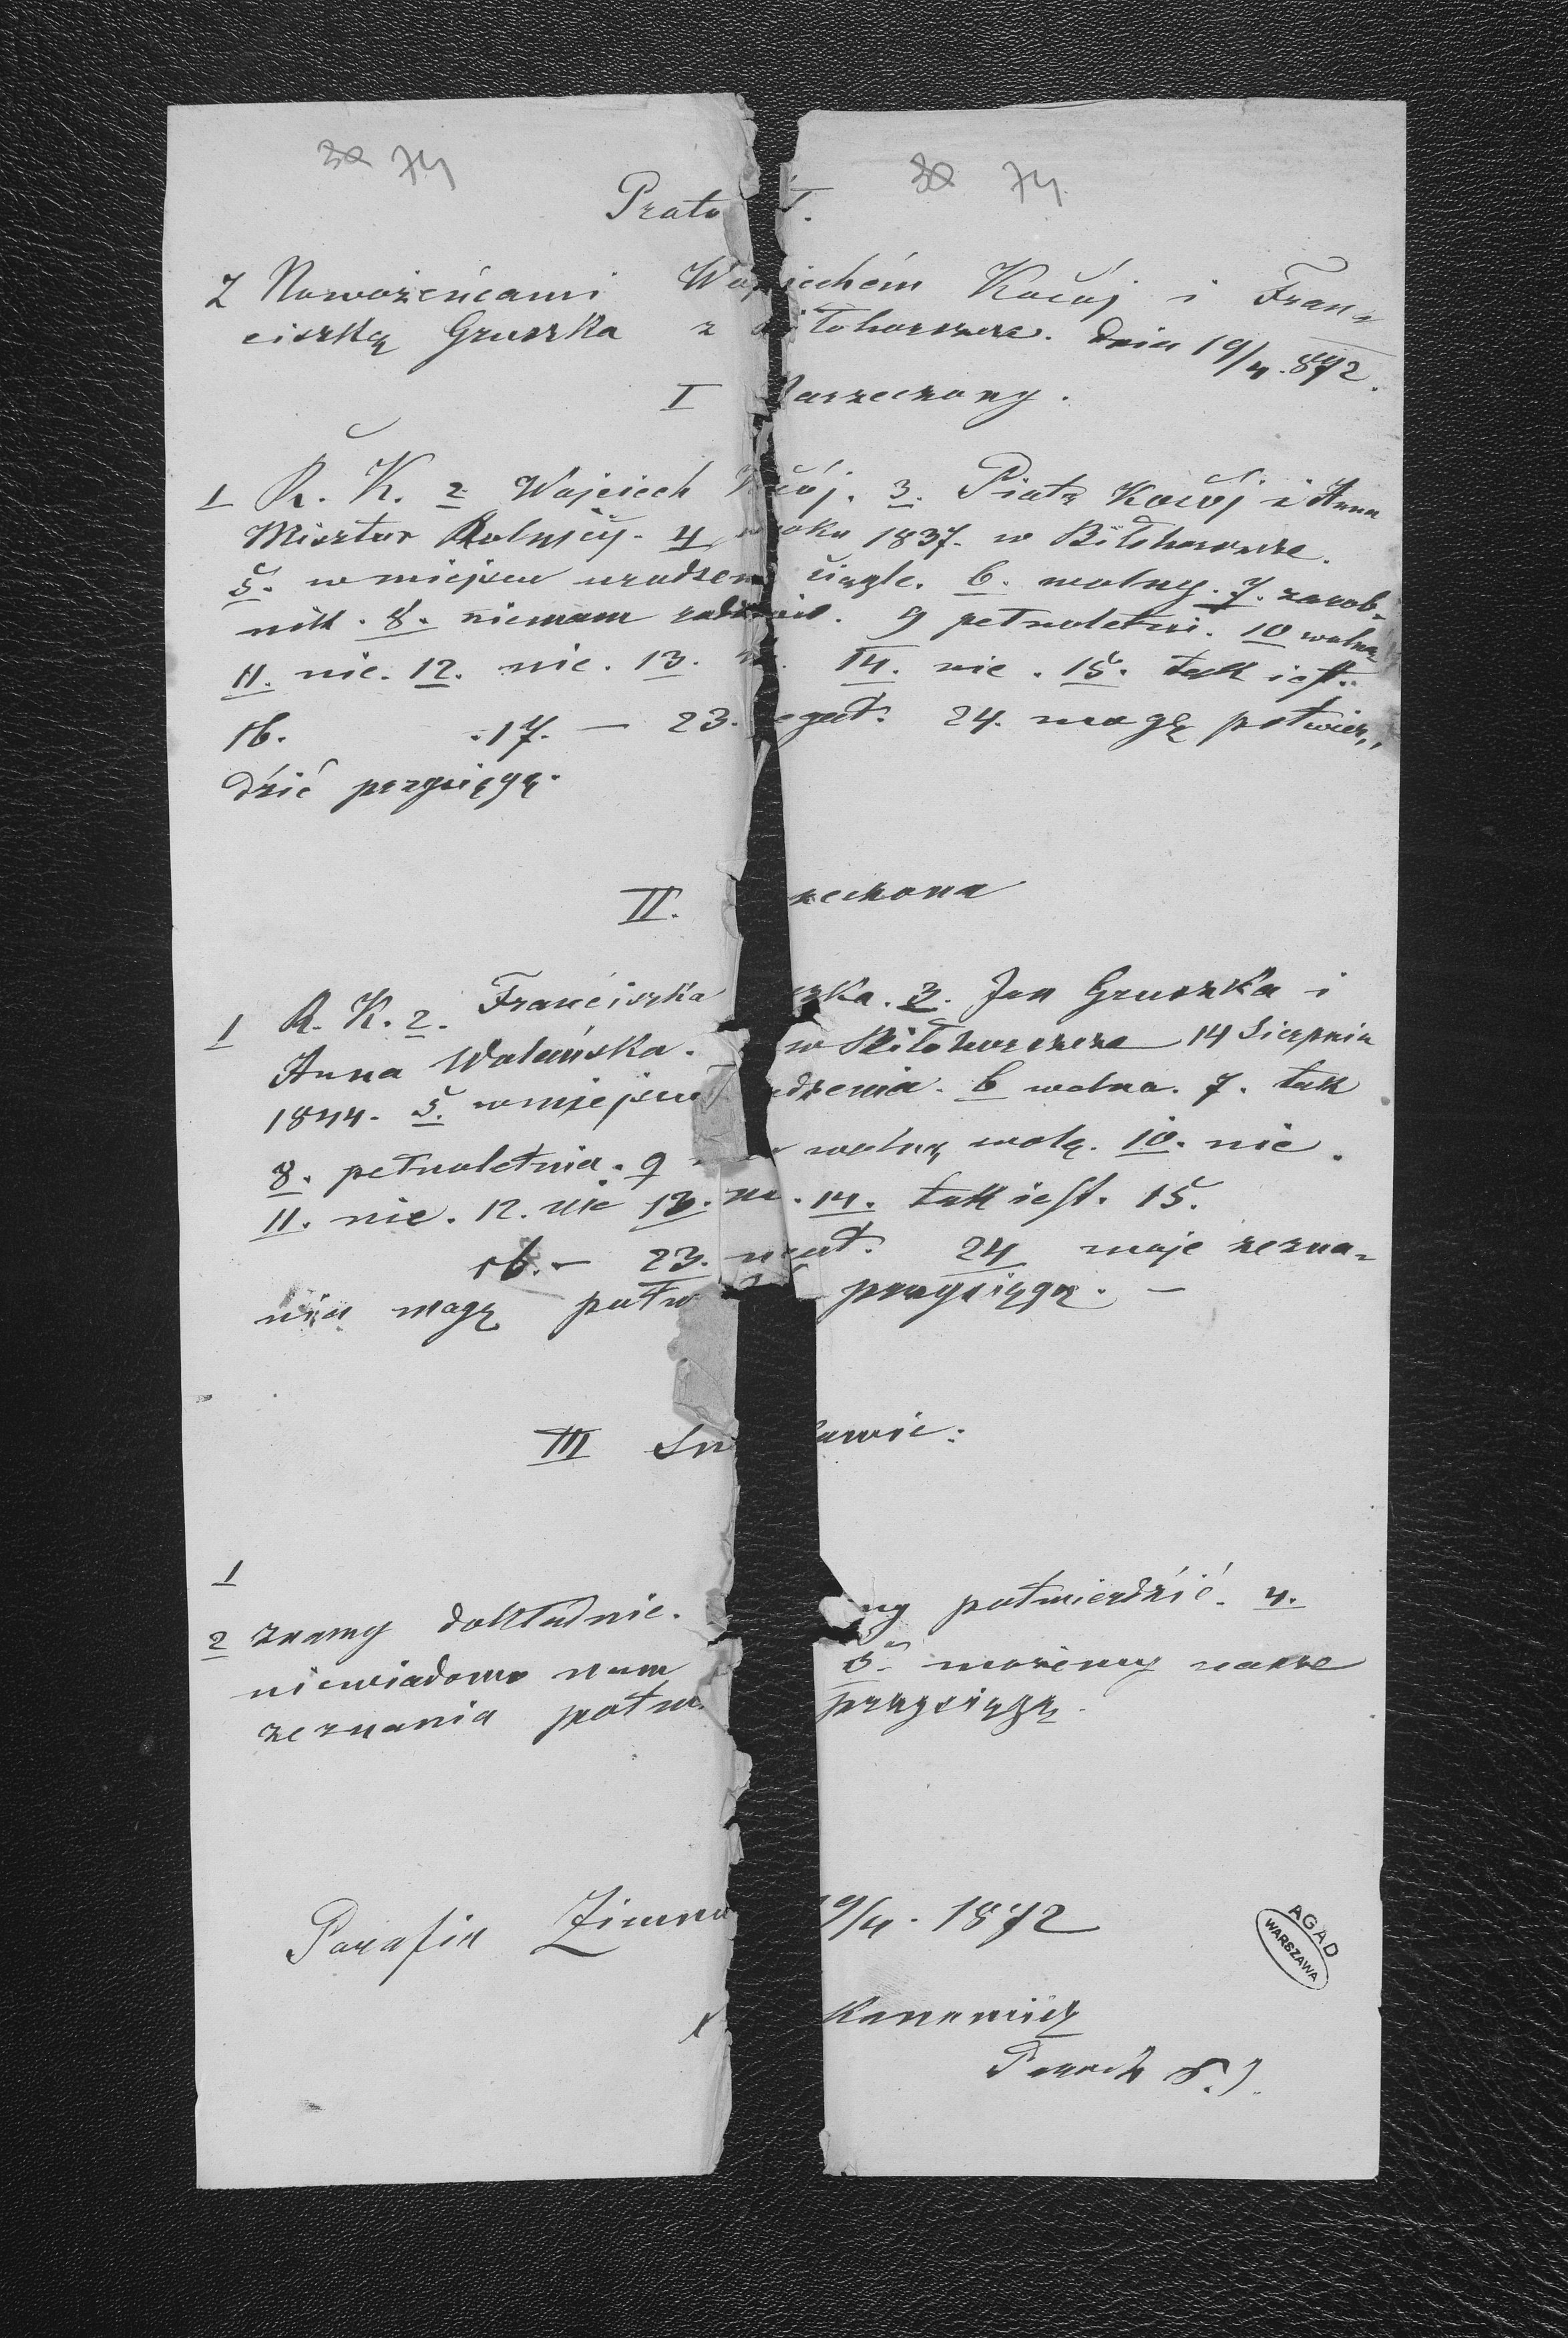 30 74 30 74.
Proto T.
Z Nowożeńcami Wojciechem Kočój i Fran-
ciszką Gruszka z Biłohorszcze. Dnia 19/4. 872.
I Narzeczony.
1 R. K. 2 Wojciech Kočój. 3. Piotr Kočój i Anna
Misztur Rolnicy. 4 w roku 1837. w Biłohorszcze.
5. w miejscu urodzenia ciągle. 6. wolny. 7. zarob-
nik. 8. niemam rodziców. 9 pełnoletni. 10 wolną
11. nie. 12. nie. 13. nie. 14. nie. 15. tak jest.
16. . 17. — 23. negat. 24. mogę potwier-
dzić przysięgą.
II. zeczona
1 R. K. 2. Franciszka szka. 3. Jan Gruszka i
Anna Walańska. w Biłohorszcze 14 Sierpnia
1844. 5. w miejscu urodzenia. 6 wolna. 7. tak
8. pełnoletnia. 9 wolną wolę. 10. nie.
11. nie. 12. nie 13. nie. 14. tak jest. 15.
16. — 23. negat. 24 moje zezna-
nia mogę potw przysięgą. —
III Św owie:
1
2 znamy dokładnie. my potwierdzić. 4.
niewiadomo nam 5. możemy nasze
zeznania potw. przysięgą.
Parafia Zimna 19/4. 1872
X Kanamicz
Paroch
AGAD
WARSZAWA